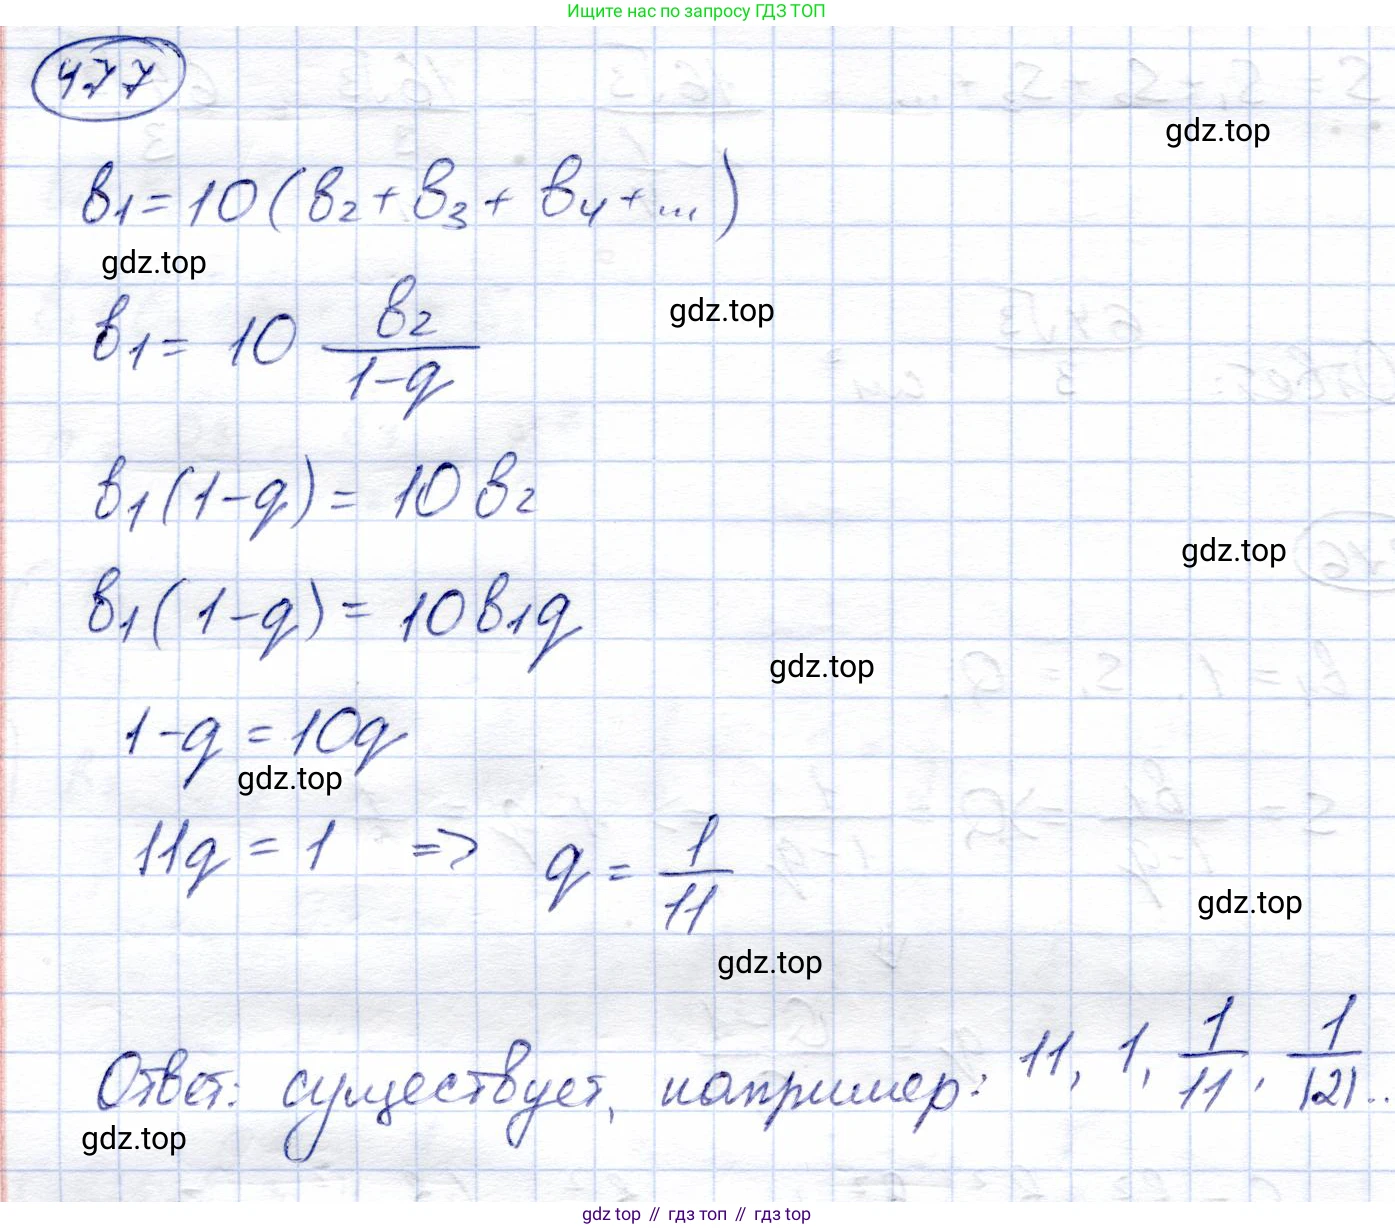 Ищите нас по запросу ГДЗ ТОП
477
gdz.top
b₁ = 10(b₂ + b₃ + b₄ + ...)
gdz.top
gdz.top
b₁ = 10 b₂/(1-q)
b₁(1-q) = 10b₂
gdz.top
b₁(1-q) = 10b₁q
gdz.top
1-q = 10q
gdz.top
11q = 1 => q = 1/11
gdz.top
gdz.top
Ответ: существует, например: 11, 1, 1/11, 1/121..
gdz.top
gdz top // гдз топ // гдз top